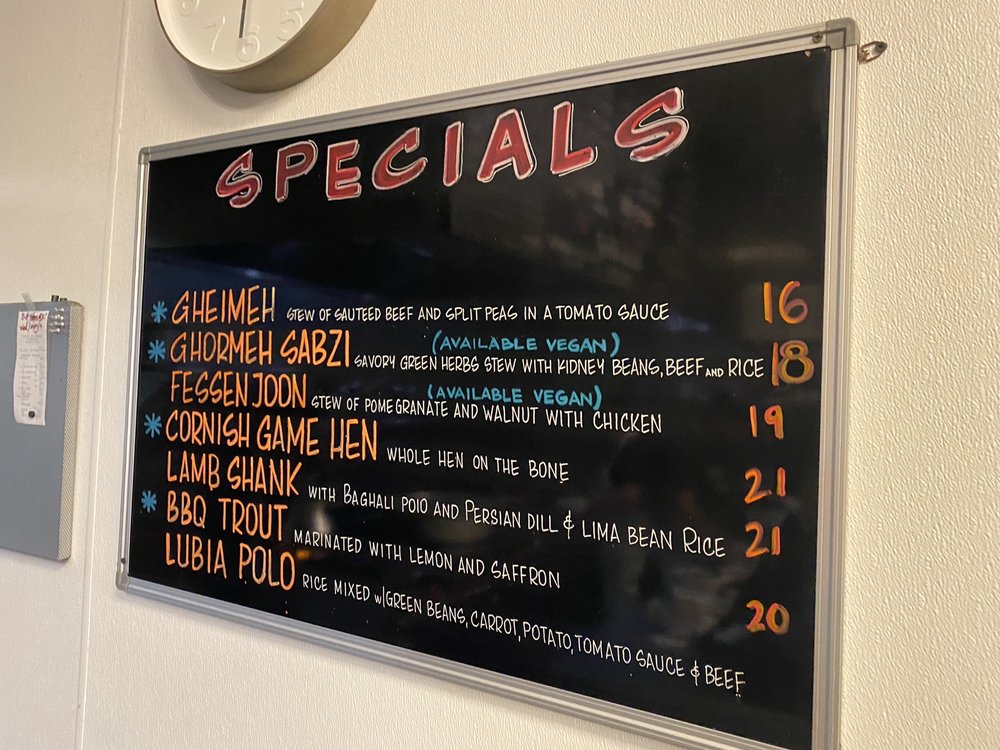 6 5
SPECIALS
* GHEIMEH STEW OF SAUTEED BEEF AND SPLIT PEAS IN A TOMATO SAUCE 16
(AVAILABLE VEGAN)
* GHORMEH SABZI SAVORY GREEN HERBS STEW WITH KIDNEY BEANS, BEEF AND RICE 18
(AVAILABLE VEGAN)
FESSENJOON STEW OF POMEGRANATE AND WALNUT WITH CHICKEN 19
* CORNISH GAME HEN WHOLE HEN ON THE BONE 21
LAMB SHANK WITH BAGHALI POLO AND PERSIAN DILL & LIMA BEAN RICE 21
* BBQ TROUT MARINATED WITH LEMON AND SAFFRON 20
LUBIA POLO RICE MIXED w/ GREEN BEANS, CARROT, POTATO, TOMATO SAUCE & BEEF